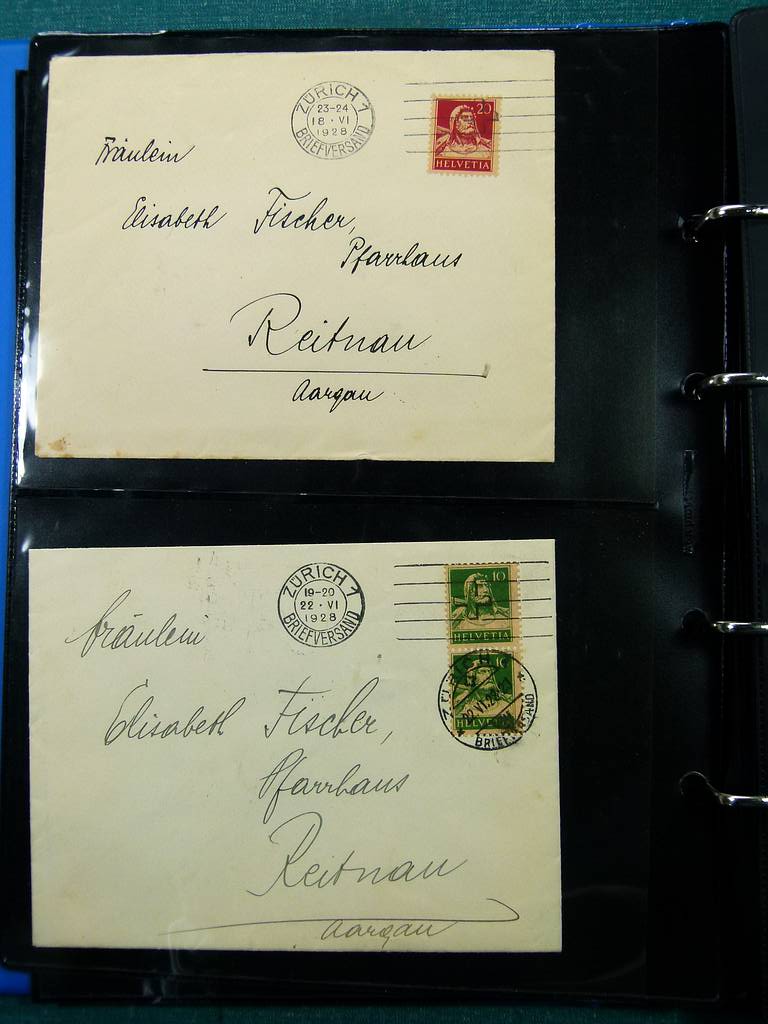 ZÜRICH 1
23-24
18 · VI
1928
BRIEFVERSAND
20
HELVETIA
Fräulein
Elisabeth Fischer,
Pfarrhaus
Reitnau
Aargau
ZÜRICH 1
19-20
22 · VI
1928
BRIEFVERSAND
10
HELVETIA
Fräulein
10
ZÜRICH
22.VI.28
BRIEFVERSAND
Elisabeth Fischer,
Pfarrhaus
Reitnau
Aargau